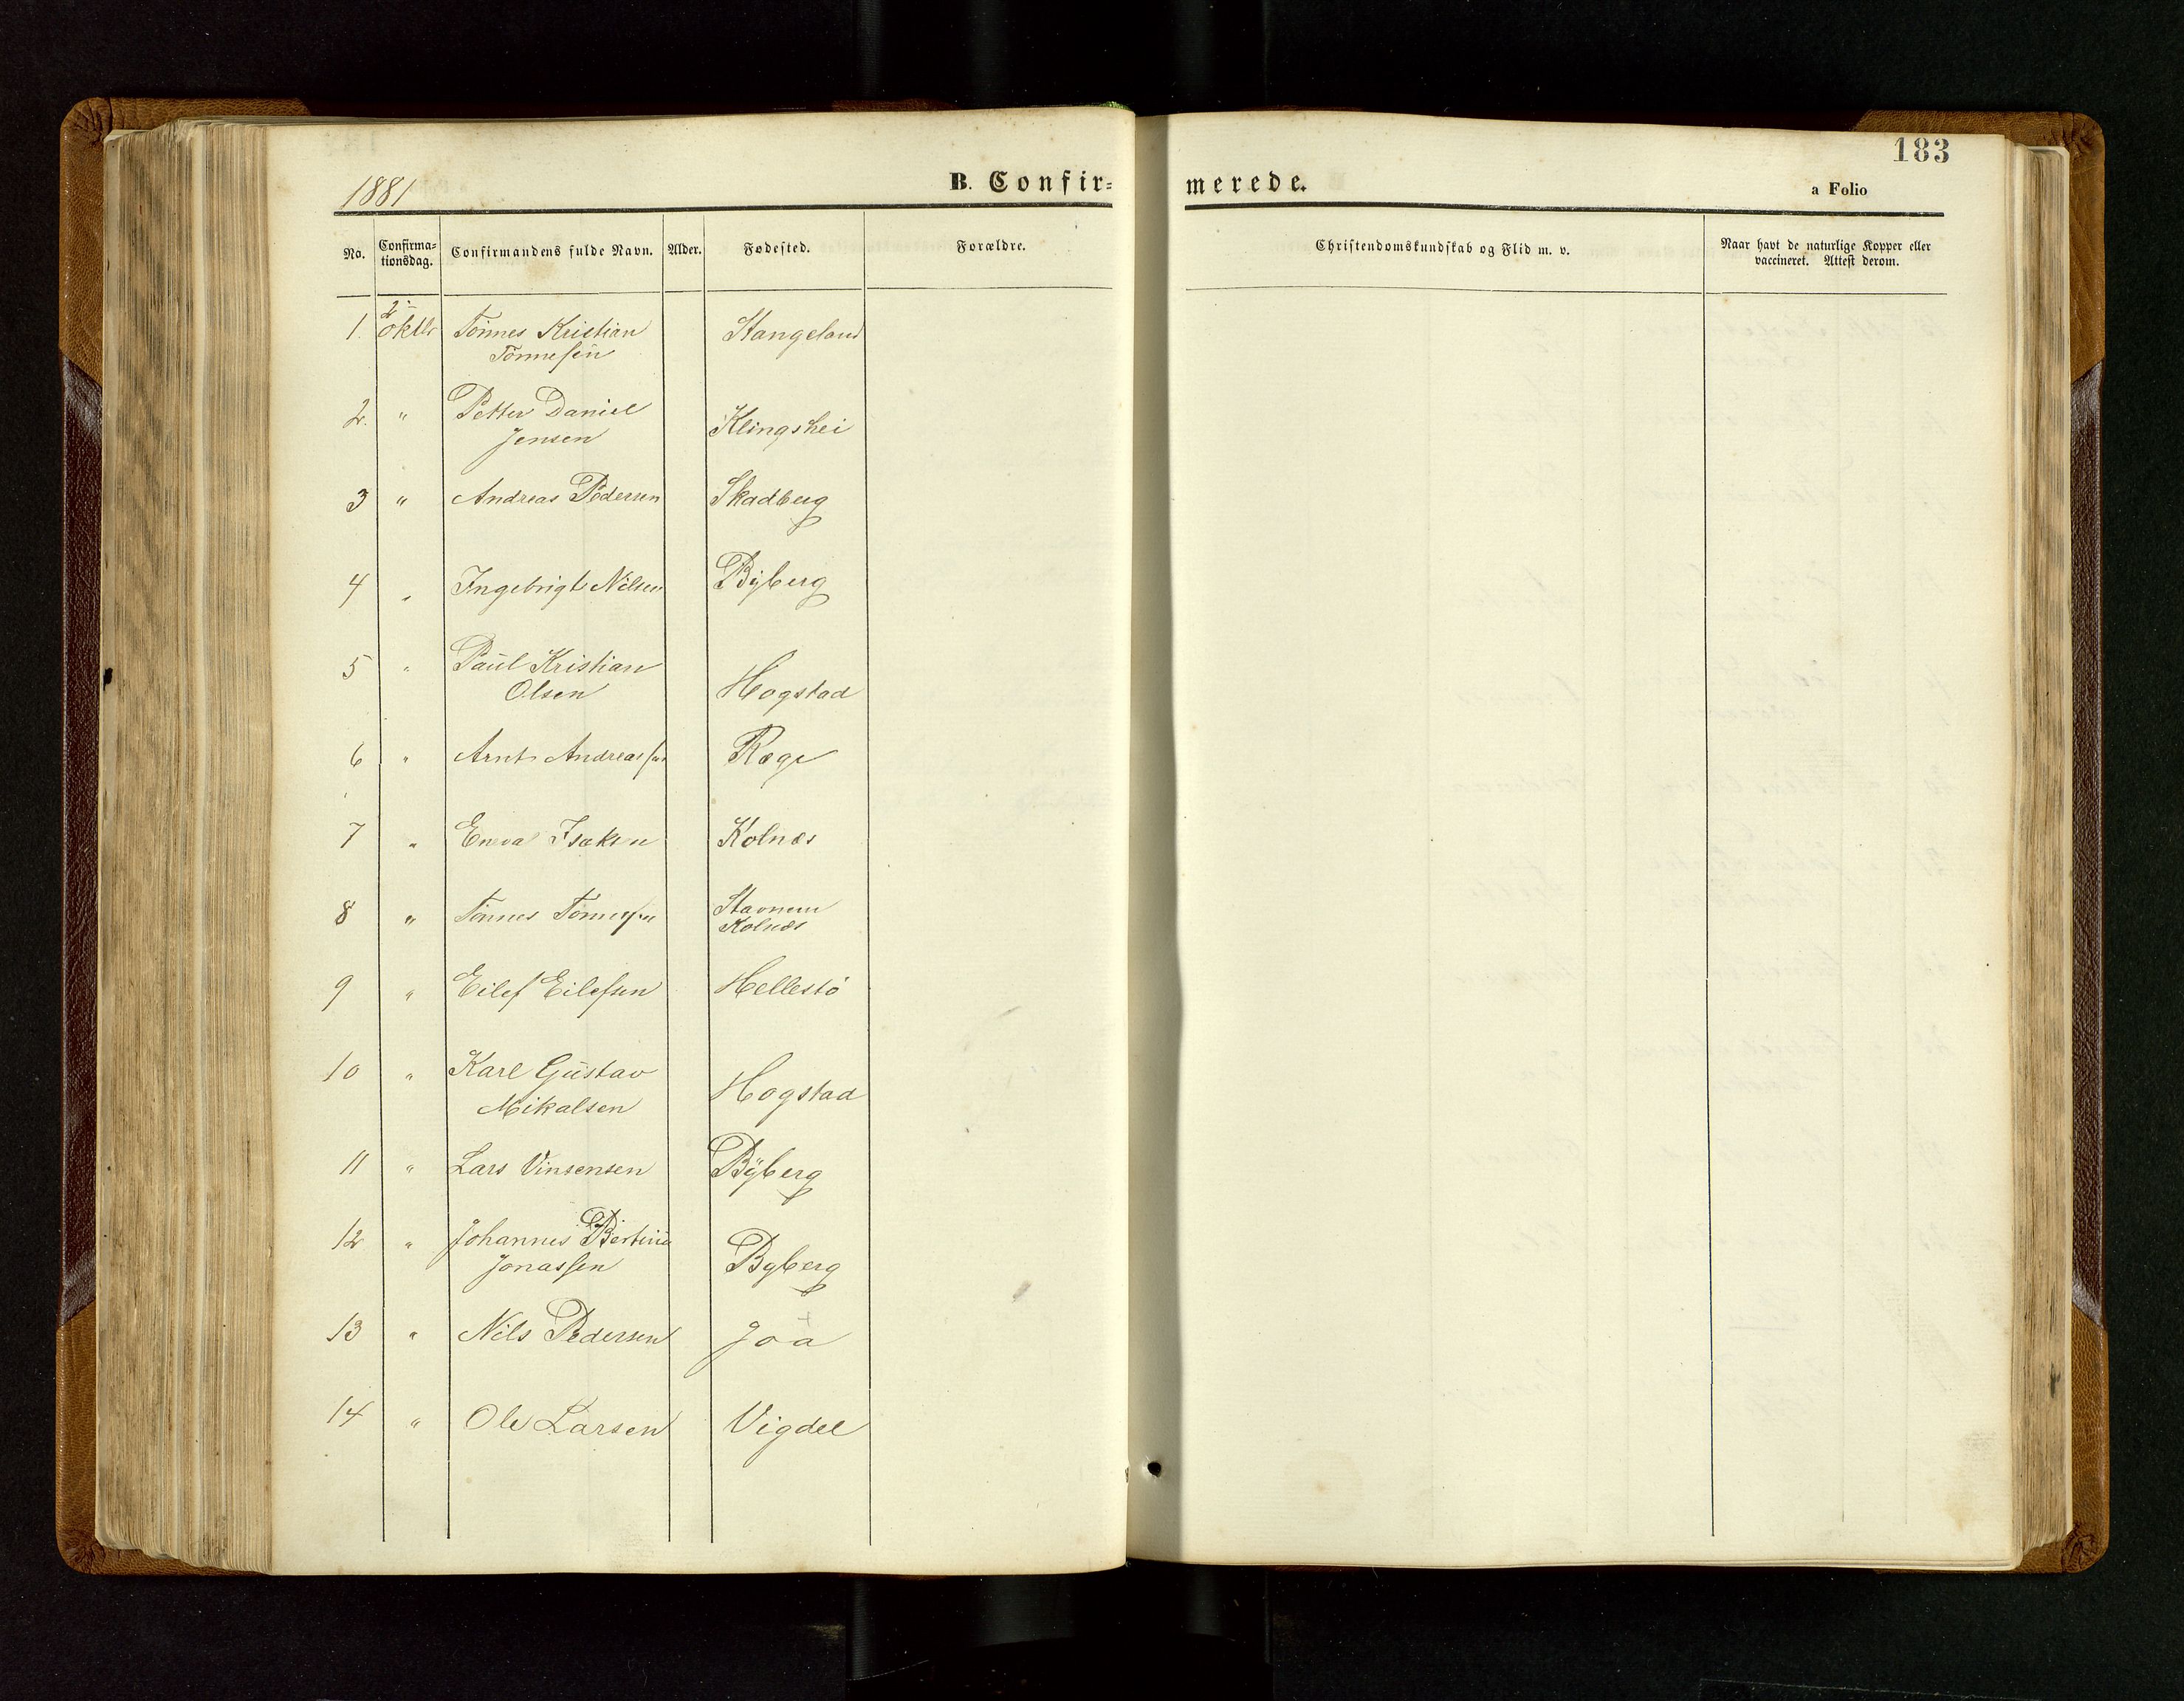 183
1881
B. Confir=
merede.
a Folio
No.
Confirma=
tionsdag.
Confirmandens fulde Navn.
Alder.
Fødested.
Forældre.
Christendomskundskab og Flid m. v.
Naar havt de naturlige Kopper eller
vaccineret. Attest derom.
1. 2 oktbr Tönnes Kristian Stangeland
Tönnesen
2. " Petter Daniel
Jensen Klingshei
3 " Andreas Pedersen Skadberg
4 " Ingebrigt Nilsen Byberg
5 " Paul Kristian
Olsen Hogstad
6 " Arnt Andreassen Røge
7 " Isaksen Kolnes
8 " Tönnes Tönnesen Stavnem
Kolnes
9 " Eilef Eilefsen Hellestö
10 " Karl Gustav
Mikalsen Hogstad
11 " Lars Vinsensen Byberg
12 " Johannes Bertinius
Jonassen Byberg
13 " Nils Pedersen Joa
14 " Ole Larsen Vigdel